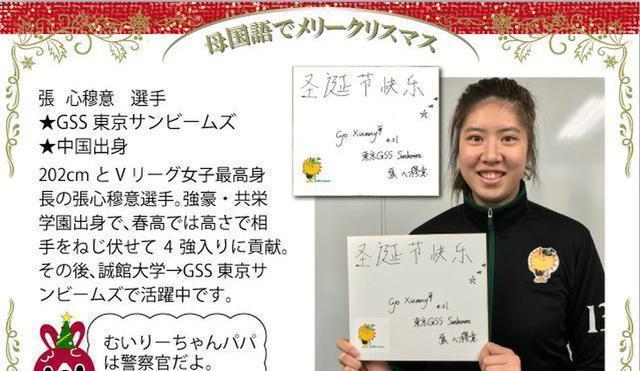 母国語でメリークリスマス
張 心穆意 選手
★GSS 東京サンビームズ
★中国出身
202cm と V リーグ女子最高身
長の張心穆意選手。強豪・共栄
学園出身で、春高では高さで相
手をねじ伏せて 4 強入りに貢献。
その後、誠館大学→GSS 東京サ
ンビームズで活躍中です。
むいりーちゃんパパ
は警察官だよ。
圣诞节快乐
#21
東京GSS Sunbeams
圣诞节快乐
#21
東京GSS Sunbeams
13